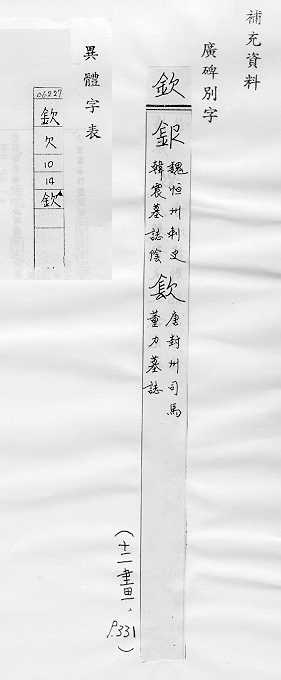 補充資料
廣碑別字
欽
銀
魏恒州刺史
韓震墓誌陰
唐封州司馬
董力墓誌
(十二畫, P.331)
異體字表
欽
欠
10
14
欽